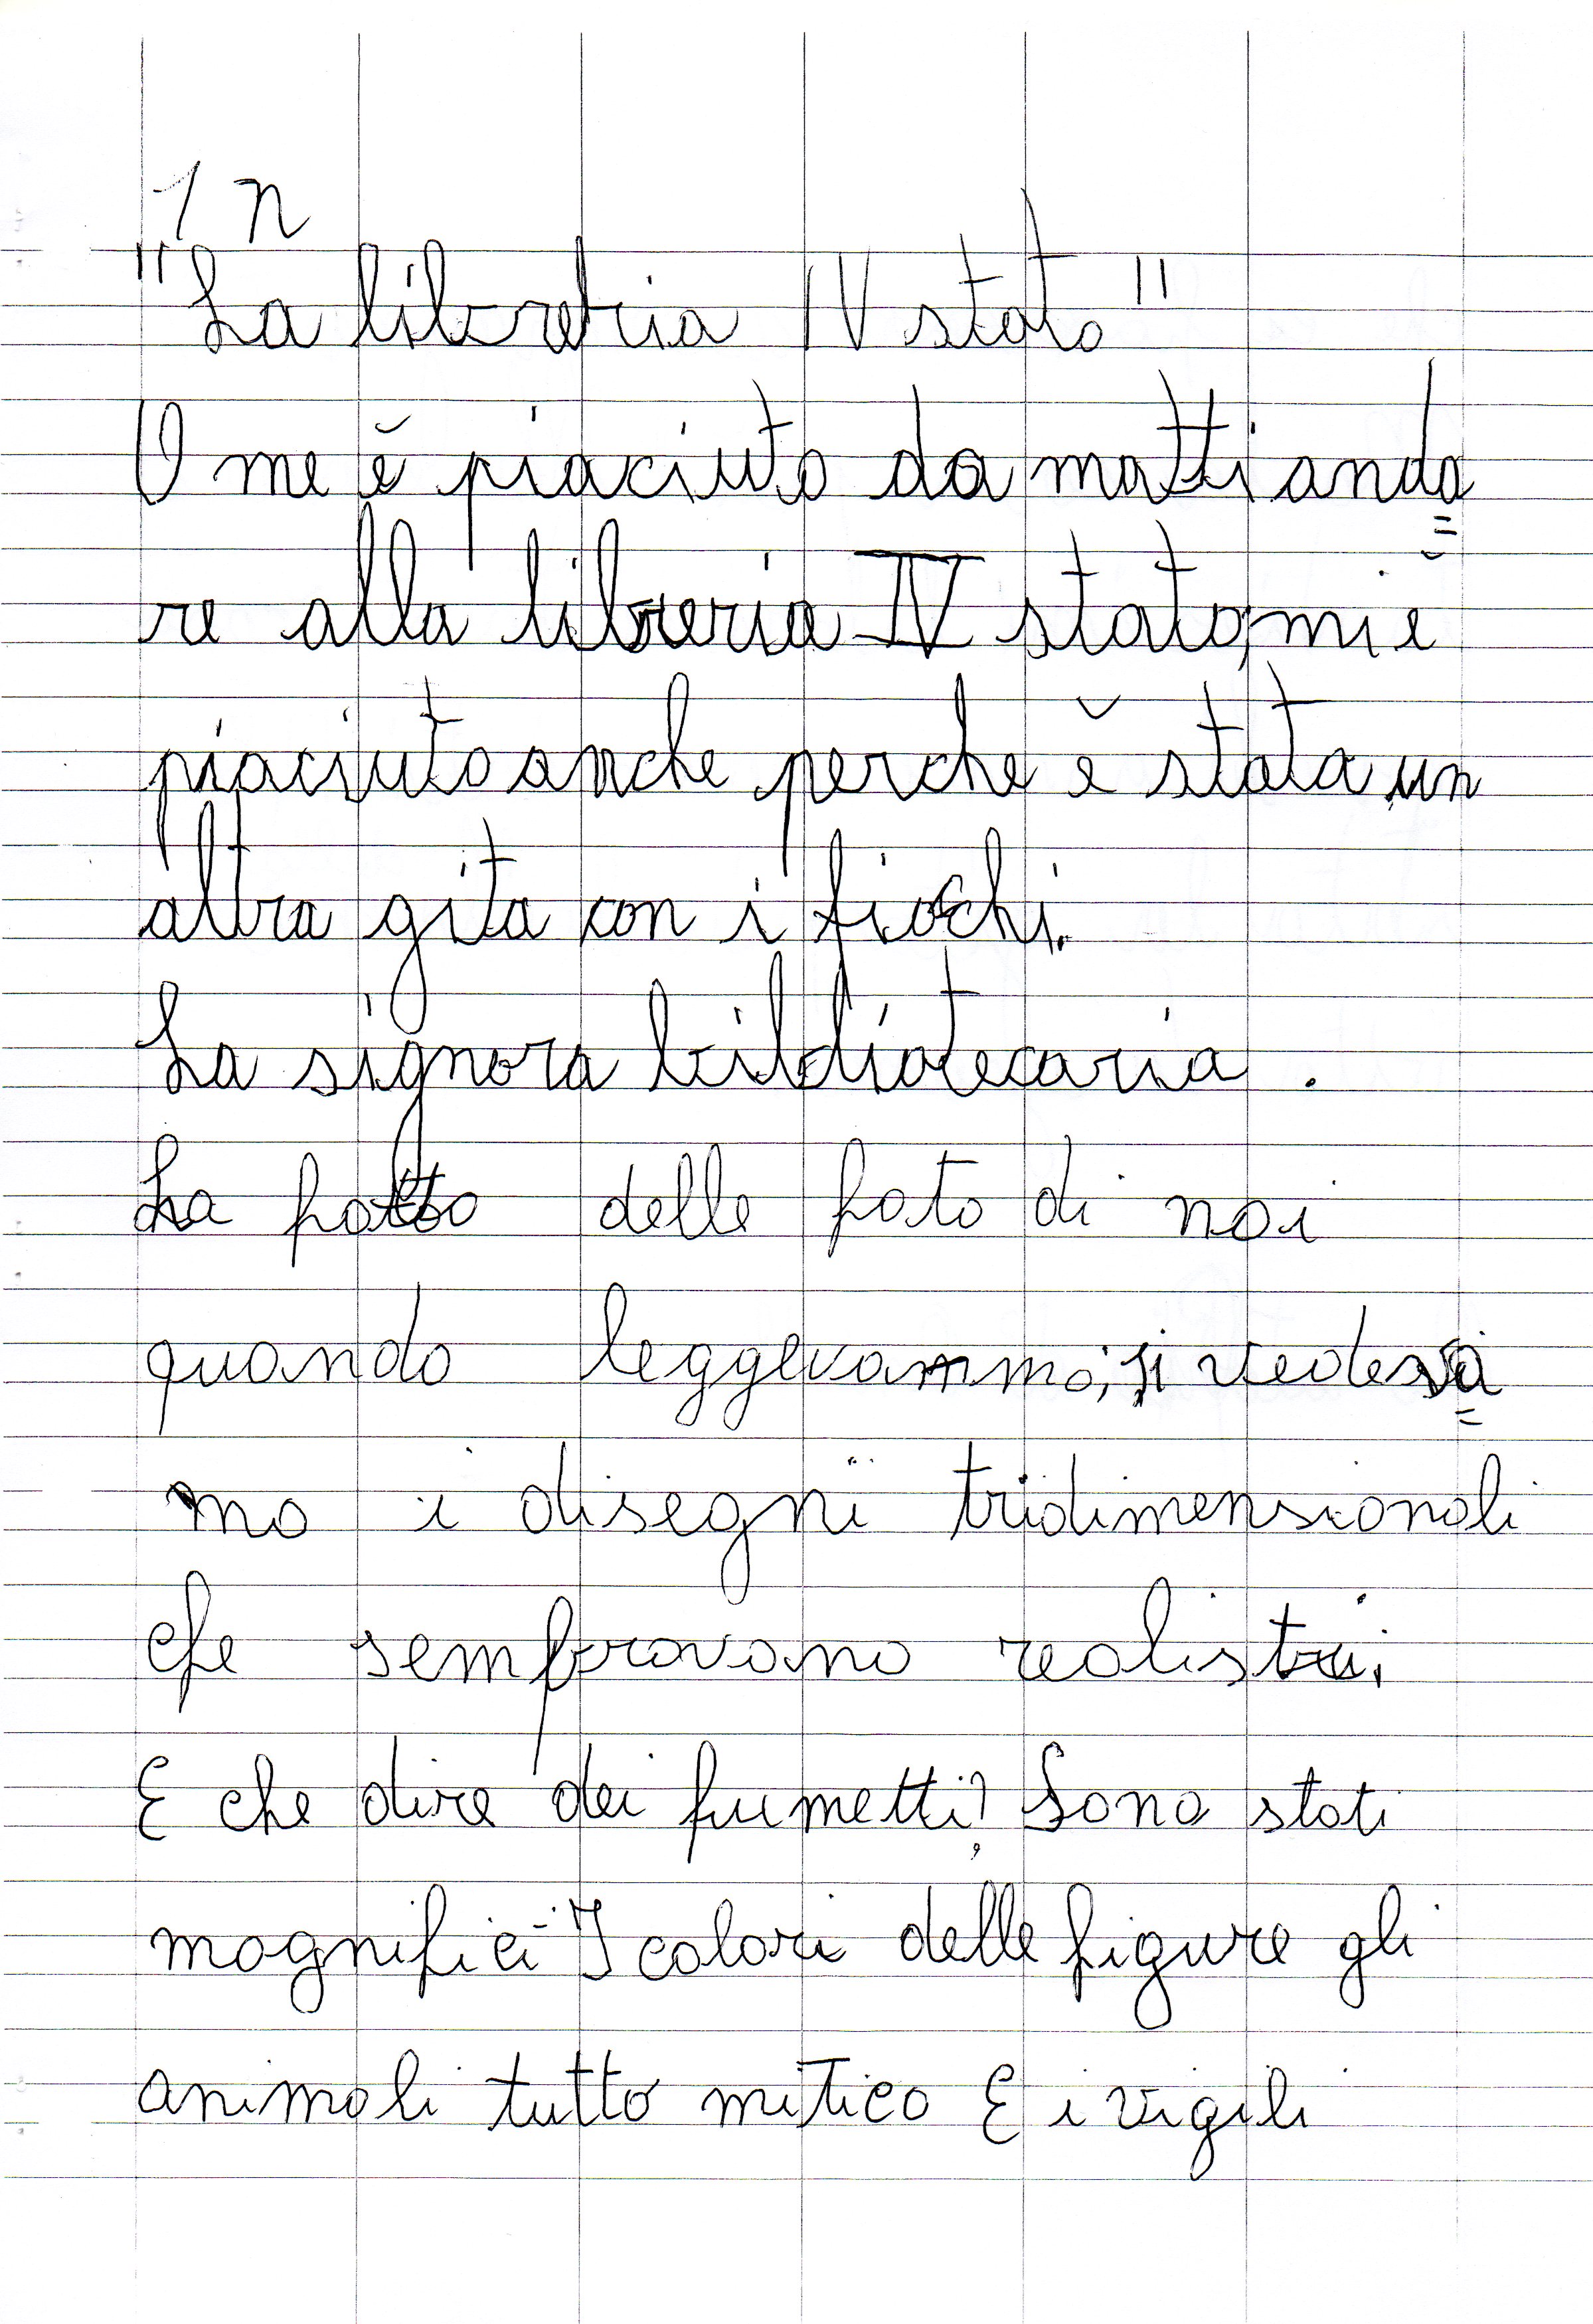 1 n
"La libreria IV stato"
O me è piaciuto da matti anda=
re alla libreria IV stato, mi è
piaciuto anche perche è stata un
altra gita con i fiochi.
La signora bibliotecaria.
La fatto delle foto di noi
quando leggevammo, si vedeva=
mo i disegni tridimensionali
che sembravano realistici.
E che dire dei fumetti? Sono stati
magnifici I colori delle figure gli
animali tutto mitico E i vigili